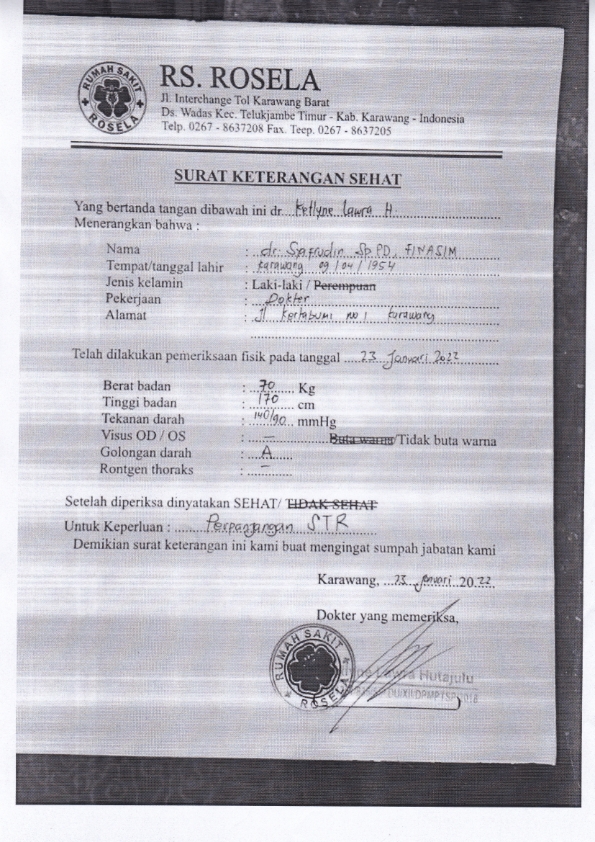 RUMAH SAKIT
ROSELA
RS. ROSELA
Jl. Interchange Tol Karawang Barat
Ds. Wadas Kec. Telukjambe Timur - Kab. Karawang - Indonesia
Telp. 0267 - 8637208 Fax. Teep. 0267 - 8637205
SURAT KETERANGAN SEHAT
Yang bertanda tangan dibawah ini dr. Ketlyne Laura H
Menerangkan bahwa :
Nama : dr. Safrudin Sp.PD, FINASIM
Tempat/tanggal lahir : Karawang 09/04/1954
Jenis kelamin : Laki-laki / Perempuan
Pekerjaan : Dokter
Alamat : Jl Kertabumi no 1 Karawang
Telah dilakukan pemeriksaan fisik pada tanggal 23 Januari 2022
Berat badan : 70 Kg
Tinggi badan : 170 cm
Tekanan darah : 140/90 mmHg
Visus OD / OS : – Buta warna/Tidak buta warna
Golongan darah : A
Rontgen thoraks : –
Setelah diperiksa dinyatakan SEHAT/ TIDAK SEHAT
Untuk Keperluan : Perpanjangan STR
Demikian surat keterangan ini kami buat mengingat sumpah jabatan kami
Karawang, 23 Januari 2022
Dokter yang memeriksa,
RUMAH SAKIT
ROSELA
Laura Hutajulu